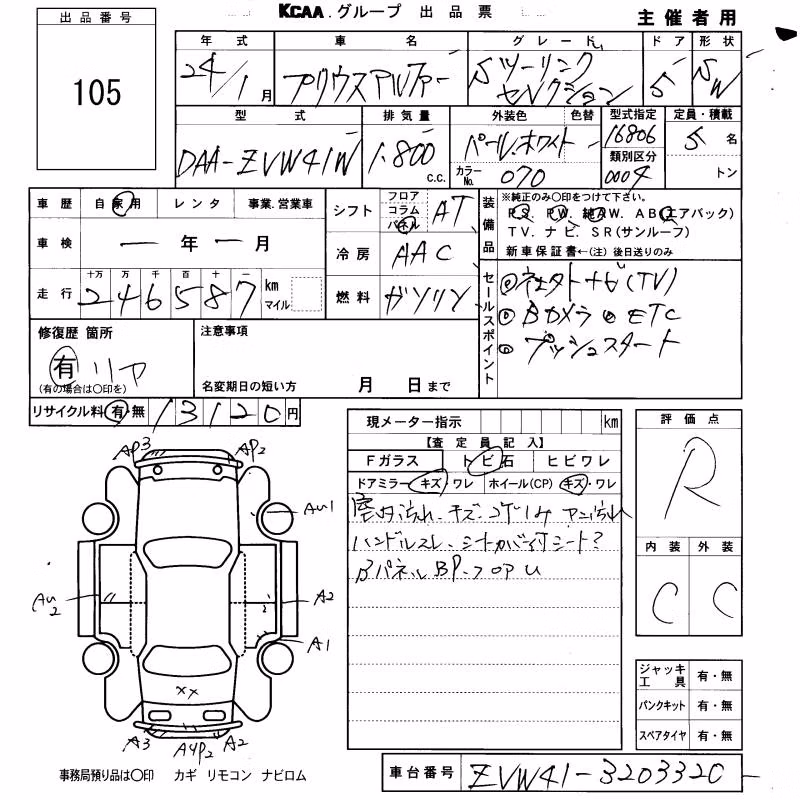 KCAA.グループ 出品票
主催者用
出品番号
105
年式 車名 グレード ドア 形状
24/1月 プリウスアルファー Sツーリング セレクション 5 SW
型式 排気量 外装色 色替 型式指定 定員・積載
DAA-ZVW41W 1.800 c.c. パールホワイト 16806 5名
カラーNo. 070 類別区分 0004 トン
車歴 自家用 レンタ 事業.営業車
シフト フロア コラム パネル AT
装備品 ※純正のみ○印をつけて下さい。
P.S. P.W. 純AW. AB(エアバック)
TV. ナビ. SR(サンルーフ)
新車保証書←(注) 後日送りのみ
車検 ー年ー月
冷房 AAC
走行 十万 万 千 百 十 一
246587 km マイル
燃料 ガソリン
セールスポイント
ナビ(TV)
Bカメラ ETC
プッシュスタート
修復歴 箇所
有 リア
(有の場合は○印を)
注意事項
名変期日の短い方 月 日まで
リサイクル料 有・無 13120円
現メーター指示 km
【査定員記入】
Fガラス トビ石 ヒビワレ
ドアミラー キズ・ワレ ホイール(CP) キズ・ワレ
室内汚れ、キズ、コゲ1ケ
ハンドルスレ、シートカバー付シート?
BパネルBP
評価点
R
内装 外装
C C
AP3 AP2
AU1
AU2
A2
A1
A3 A4P2 A2
XX
ジャッキ工具 有・無
パンクキット 有・無
スペアタイヤ 有・無
事務局預り品は○印 カギ リモコン ナビロム
車台番号 ZVW41-3203320